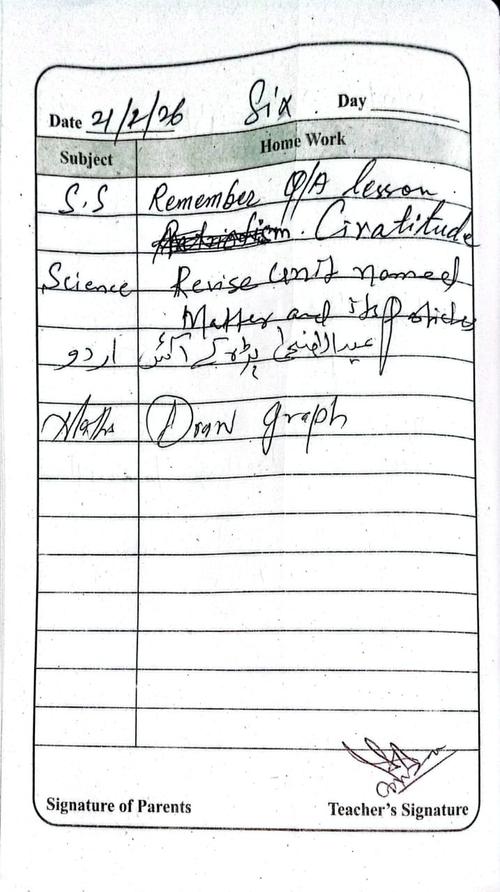 Date 21/2/26 Six Day
Subject Home Work
S.S Remember Q/A lesson
Gratitude
Science Revise Unit named
Matter and its Particles
اردو عیدالاضحیٰ پڑھ کے آئیں
Maths Draw graph
Signature of Parents Teacher's Signature